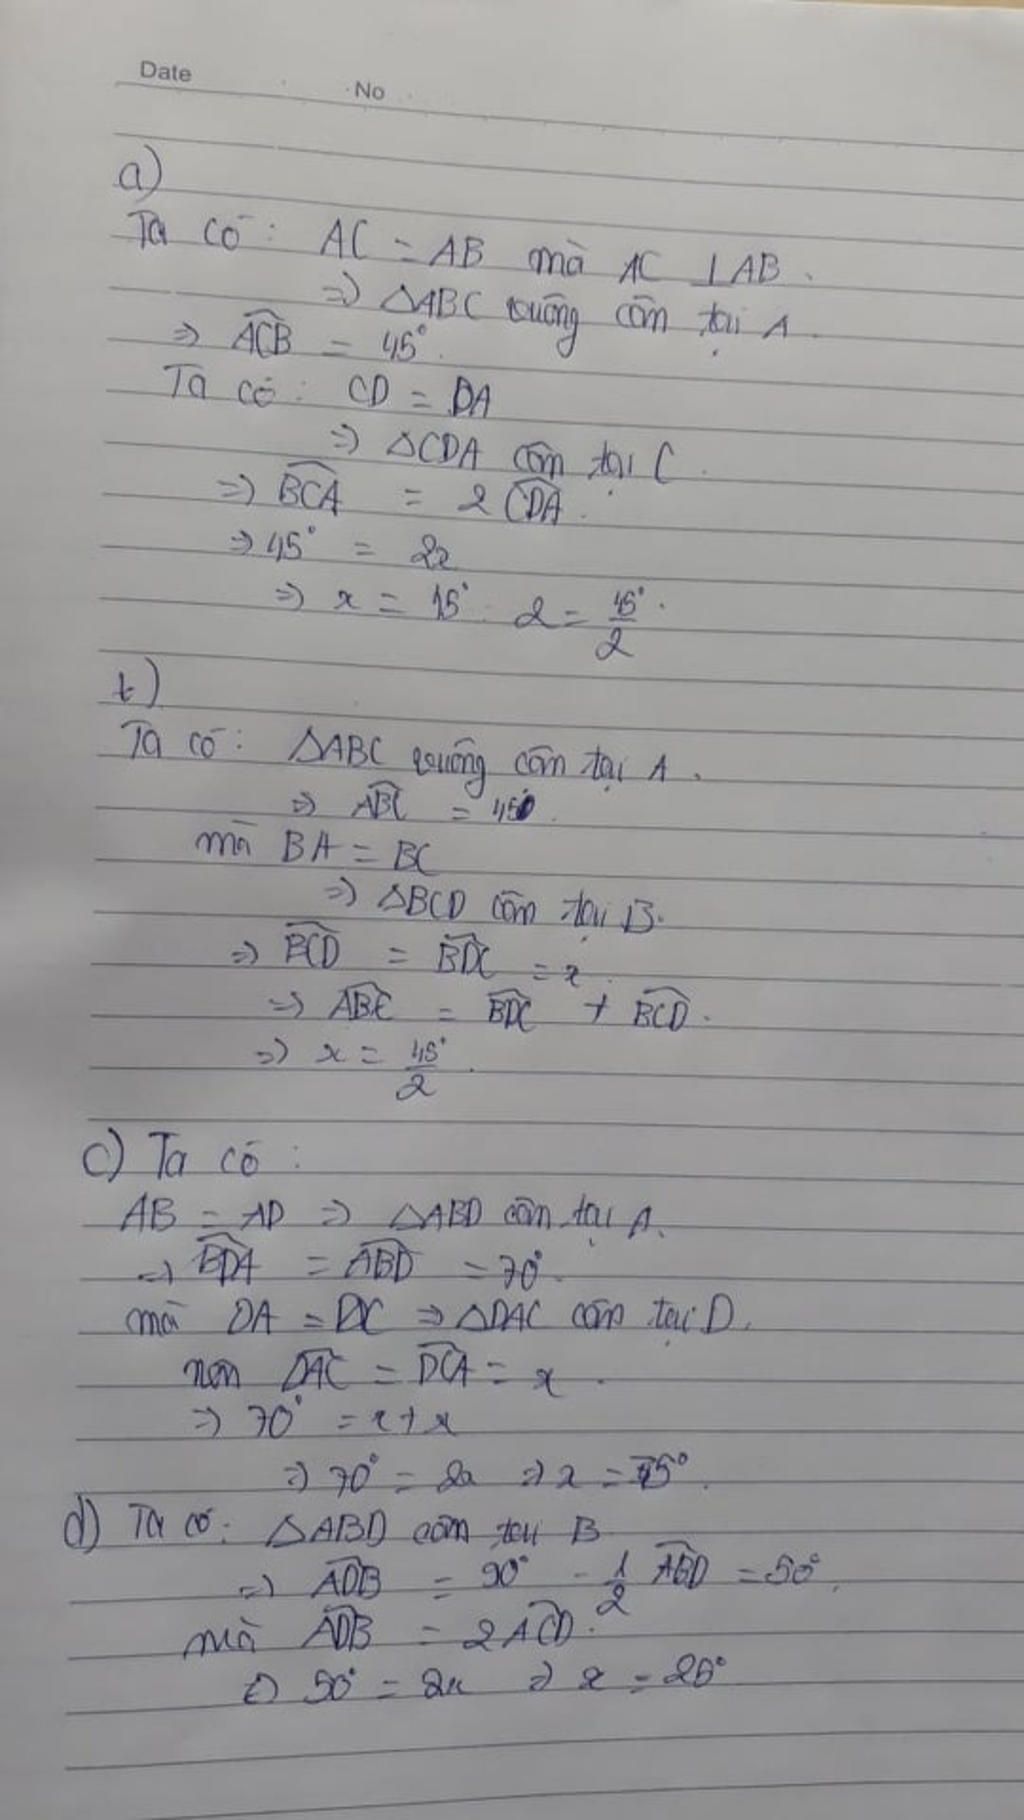 Date
No
a)
Ta có: AC = AB mà AC ⊥ AB.
=> △ABC vuông cân tại A.
=> ACB = 45°.
Ta có: CD = DA
=> △CDA cân tại C.
=> BCA = 2 CDA.
=> 45° = 2x
=> x = 15° 2 = 45°/2.
b)
Ta có: △ABC vuông cân tại A.
=> ABC = 450.
mà BA = BC
=> △BCD cân tại B.
=> BCD = BDC = x.
=> ABC = BDC + BCD.
=> x = 45°/2.
c) Ta có:
AB = AD => △ABD cân tại A.
=> BDA = ABD = 70°.
mà DA = DC => △DAC cân tại D.
nên DAC = DCA = x.
=> 70° = x + x
=> 70° = 2x => x = 35°.
d) Ta có: △ABD cân tại B
=> ADB = 90° - 1/2 ABD = 50°.
mà ADB = 2ACD.
50° = 2x => x = 25°